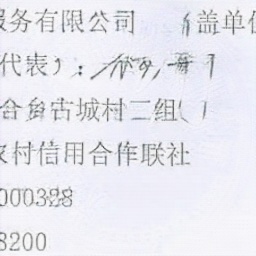 服务有限公司 （盖单位
代表）：
合乡古城村二组（
农村信用合作联社
000328
8200